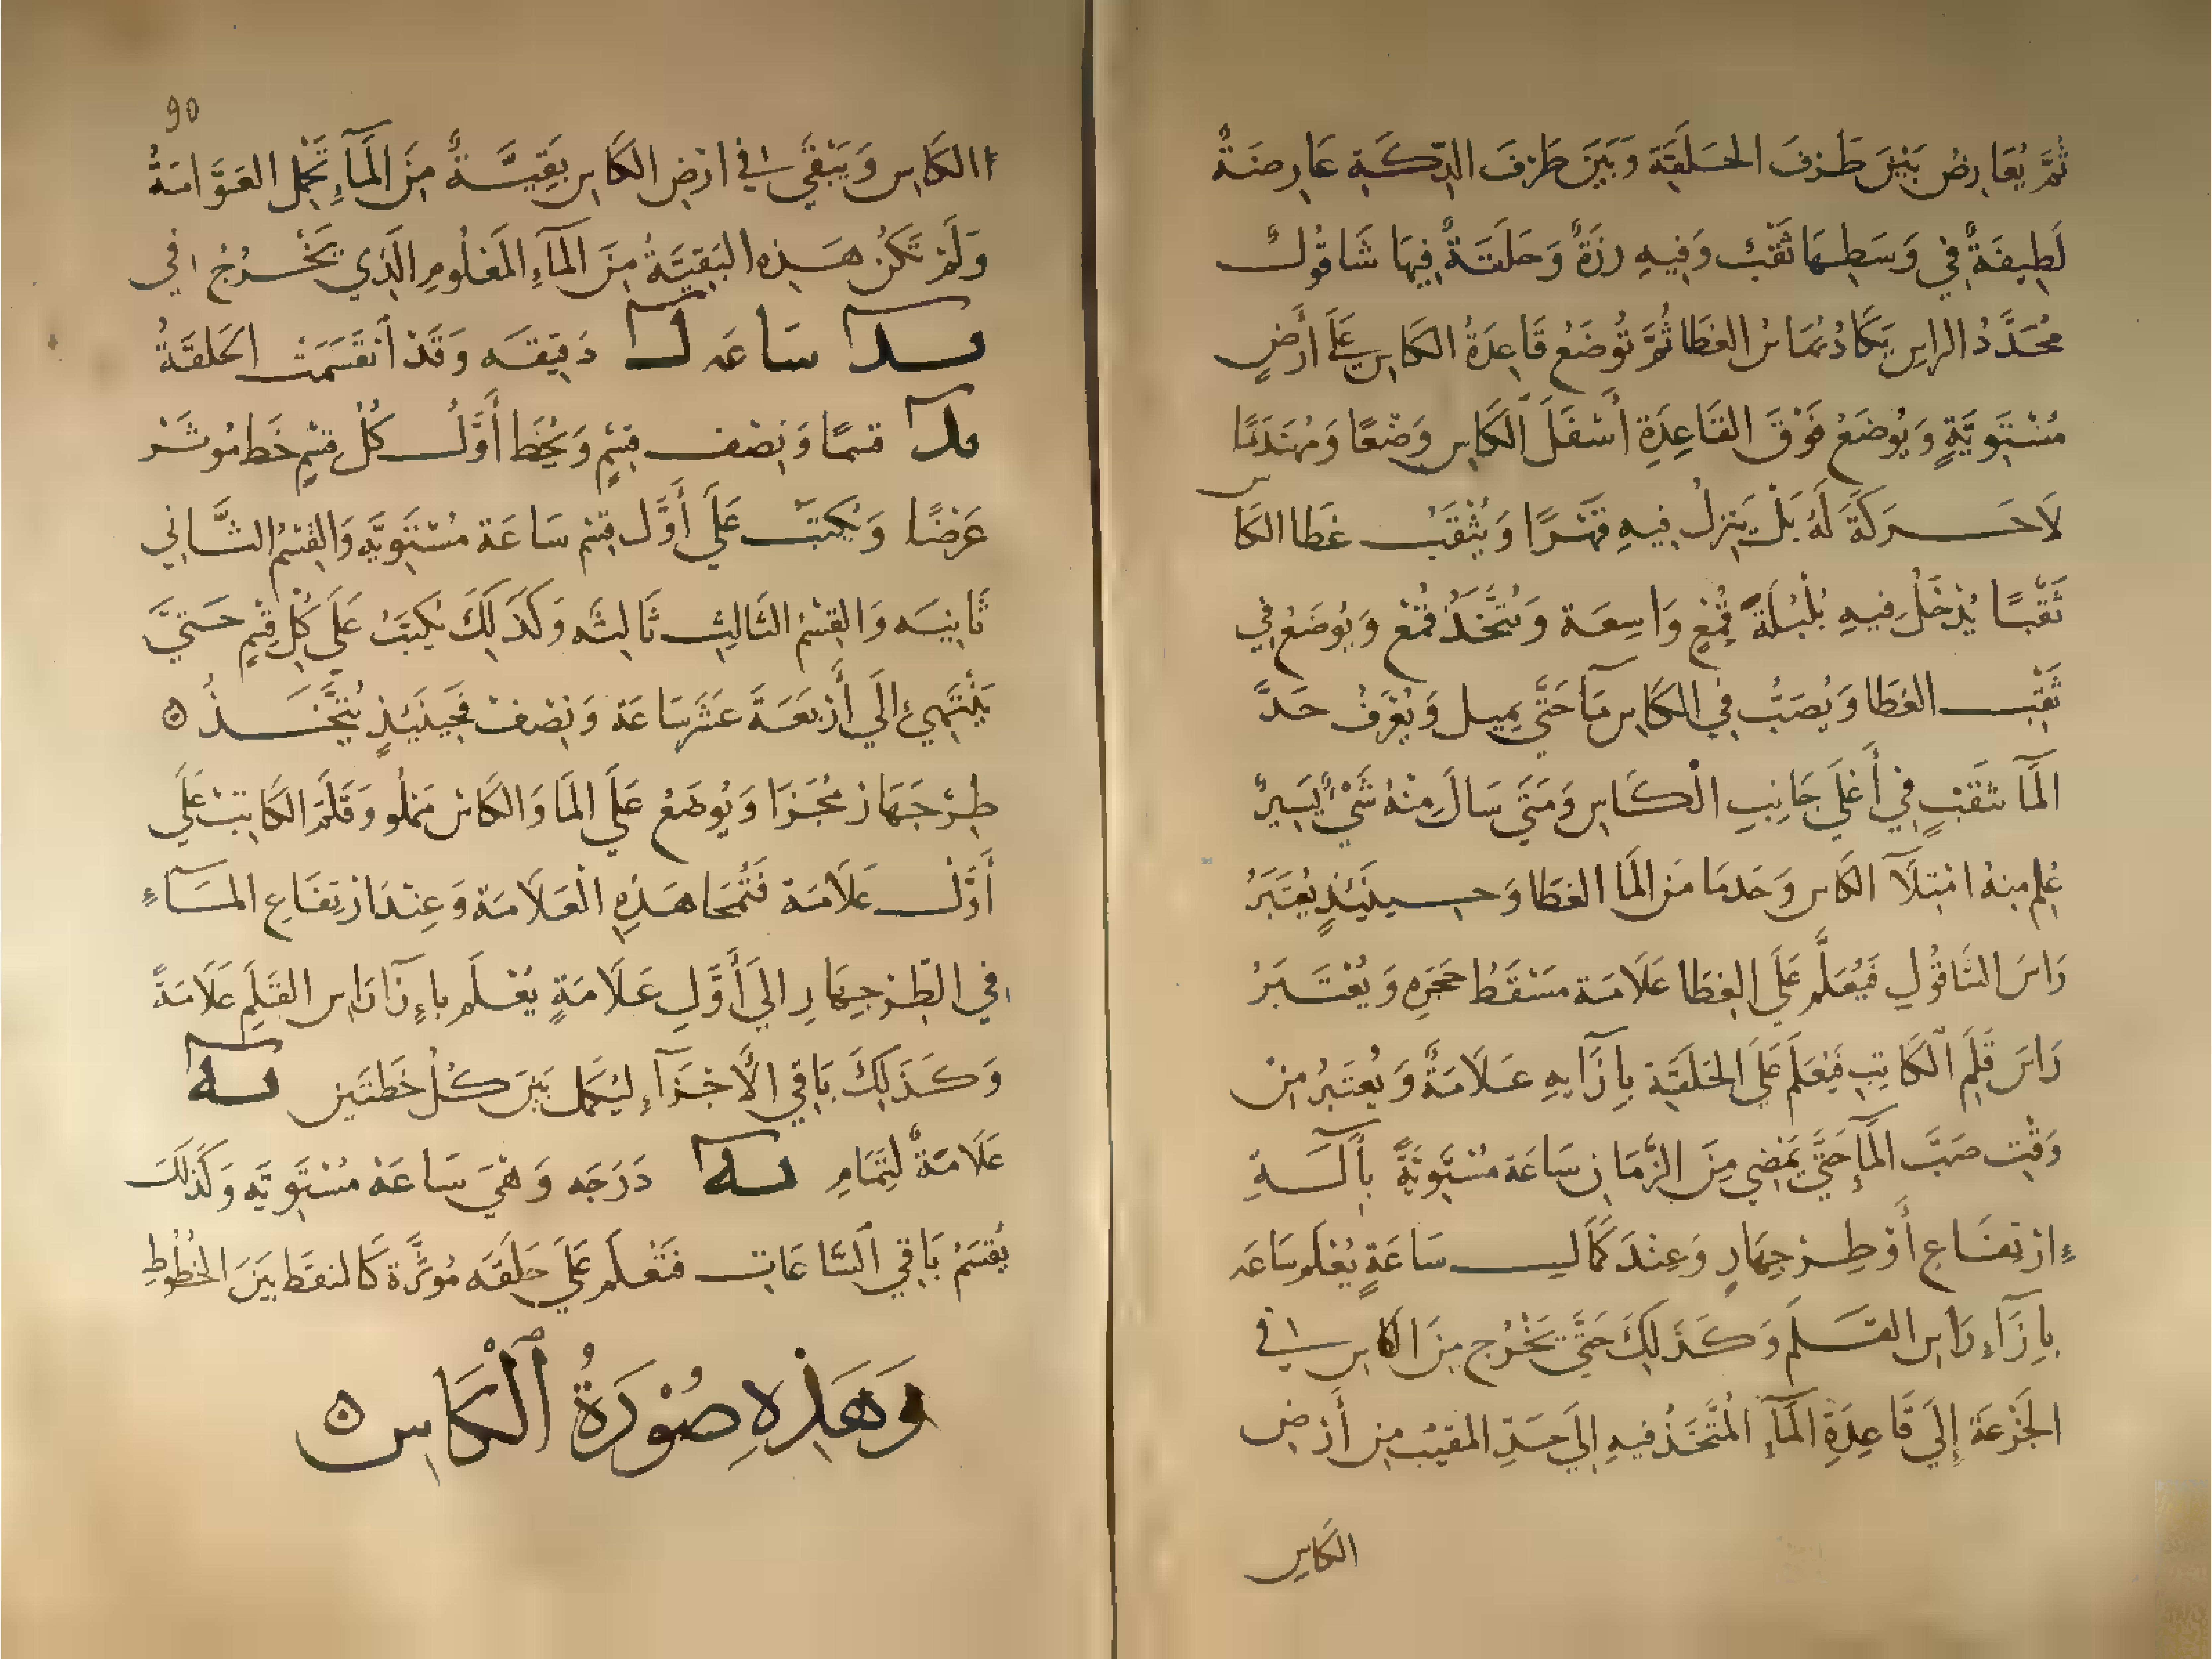 ثُمَّ يُعَارِضُ بَيْنَ طَرَفَ الحَلقَة وَبَيْنَ طَرَفَ الدَّكَةِ عَارِضَةٌ
لَطِيفَةٌ في وَسَطِهَا ثَقْبٌ وَفِيهِ رَزَةٌ وَحَلقَةٌ فِيهَا شَاقُولٌ
مُحَدَّدُ الراسِ يَكَادُ يُمَاسُ الغَطَا ثُمَّ تُوضَعُ قَاعِدَةُ الكَاسِ عَلَى أَرْضٍ
مُسْتَوِيَّةٍ وَيُوضَعُ فَوْقَ القَاعِدَةِ أَسْفَلَ الكَاسِ وَضْعًا وَمُهَندَمًا
لَا حَركَةَ لَهُ بَلْ يَنزِلُ فِيهِ قَهْرًا وَيُثْقَبُ غَطَا الكَاس
ثَقْبًا يُدْخَلُ فِيهِ بُلْبُلَة قُمْعٍ وَاسِعَة وَيُتَّخَذُ قُمْع وَيُوضَعُ فِي
ثَقْبِ الغَطَا وَيُصَبُّ فِي الكَاسِ مَآ حَتَّى يَمِيل وَيُعْرَفُ حَدَّ
المَآ بثَقْبٍ فِي أَعْلَى جَانِبِ الْكَاسِ وَمَتَى سَالَ مِنْهُ شَيْءٌ يَسِيرٌ
عُلِم مِنهُ امْتِلَآ الكَاس وَحَدمَا مَن المَا الغَطَا وَحِينَئِذٍ يُعْتَبَرُ
رَاسَ الشَاقُولِ فَيُعَلَّم عَلَى الغِطَا عَلَامَة مَسْقَطُ حَجَرِهِ وَيُعْتَبَرُ
رَاسَ قَلَمِ الْكَاتِبِ فَيُعَلَّم عَلَى الحَلقَة بِإزَآيِهِ عَلَامَةٌ وَيُعتَبَرُ مِنْ
وَقْتِ صَبِّ المَآءِ حَتَّى يَمْضِي مِنَ الزَّمَانِ سَاعَة مُسْتَوِيَةٌ بِآلَةِ
اِرْتِفَاعِ أَوْ طِرْجِهَارِ وَعِنْدَ كَمَالِ سَاعَةٍ يُعْلَم سَاعَه
بِإزَآءِ رَاسِ القَلَم وَكَذَلِكَ حَتَّى يَخْرُج مِنَ الكَاسِ في
الجَزْعَة إِلَى قَاعِدَةِ المَآءِ المُتَّخَذُ فِيهِ إِلَى حَدِّ المغيب مِن أَرْضِ
الكَاسِ
90
الكَاسِ وَيَبْقَى في ارْضِ الكَاسِ بَقِيَّةٌ مِنَ المَآءِ تَحْمِل العَوَّامَةُ
وَلَمْ تَكُنْ هَذِه البَقِيَّةُ مِنَ المَآءِ المَعْلُومِ الَّذِي يَخْرُجُ في
يد سَاعَه ل دَقِيقَه وَقَدْ أنقَسَمَتْ الحَلقَةُ
يد قسمًا وَنِصْف قِسْمٍ وَيُخَط أَوَّلُ كُلِّ قِسْمٍ خَط مُوثَر
عَرْضًا وَيُكْتَب عَلَى أَوَّل قِسْم سَاعَة مُسْتَوِيَّه وَالقِسْمُ الثَّانِي
ثَانِيَه وَالقِسْمُ الثَالِث ثَالِثَه وَكَذَلِكَ يُكْتَبُ عَلَى كُلِّ قِسْمٍ حَتَّى
يَنْتَهِيَ إلَى أَرْبَعَةَ عَشَر سَاعَة وَنِصْف فَحِينَئِذٍ يُتَّخَذُ ه
طِرْجَهَار مُجَزَا وَيُوضَعُ عَلَى المَا وَالكَاسُ مَمْلُو وَقَلَم الكَاتِبْ عَلَى
أَوَّلْ عَلَامَة فَتُمْحَا هَذِهِ الْعَلَامَة وَعِنْدَ ارْتِفَاعِ المَآءِ
فِي الطَرْجِهَارِ إلَى أَوَّلِ عَلَامَةٍ يُعْلَم بِإزَآ رَاسِ القَلَمِ عَلَامَةً
وَكَذَلِكَ بَاقِي الأَجْزَآءِ لِيُكمَل بَيْنَ كُل خَطَّتَينِ يه
عَلَامَةٌ لِتَمَامِ يه دَرَجَه وَهْيَ سَاعَة مُسْتَوِيَّه وَكَذَلَكَ
يُقْسَمُ بَاقِي السَّاعَاتِ فَتُعْلَم عَلَى حَلَقَه مُوثَّرة كَالنقَط بَيْنَ الخُطُوطِ
وَهَذِهِ صُوْرَةُ ٱلْكَاسِ ه